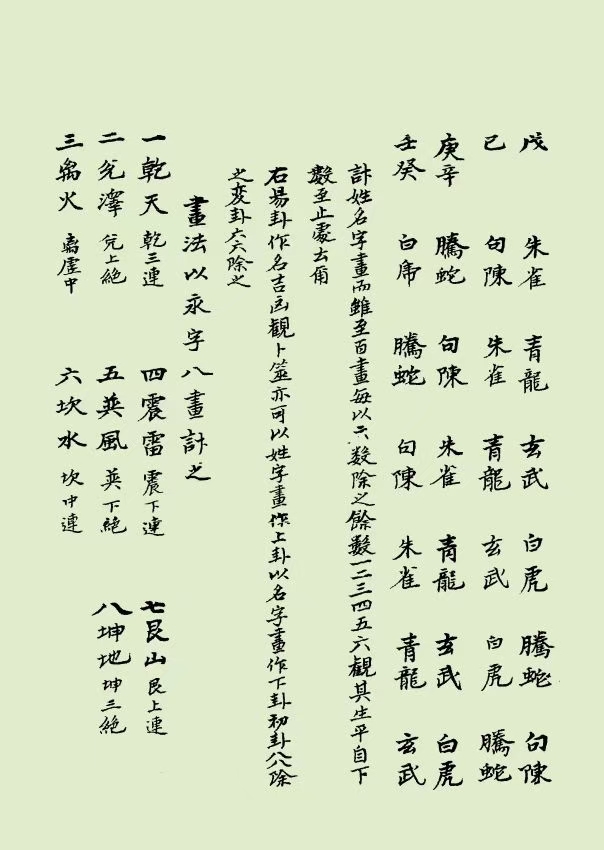 戊 朱雀 青龍 玄武 白虎 騰蛇 句陳
已 句陳 朱雀 青龍 玄武 白虎 騰蛇
庚辛 騰蛇 句陳 朱雀 青龍 玄武 白虎
壬癸 白虎 騰蛇 句陳 朱雀 青龍 玄武
計姓名字畫而雖至百畫每以六數除之餘數一二三四五六觀其生平自下
數至止處去甬
右易卦作名吉凶觀卜筮亦可以姓字畫作上卦以名字畫作下卦初卦八除
之变卦六六除之
畫法以永字八畫計之
一乾天 乾三連 四震雷 震下連 七艮山 艮上連
二兌澤 兌上絶 五巽風 巽下絶 八坤地 坤三絶
三离火 离虛中 六坎水 坎中連